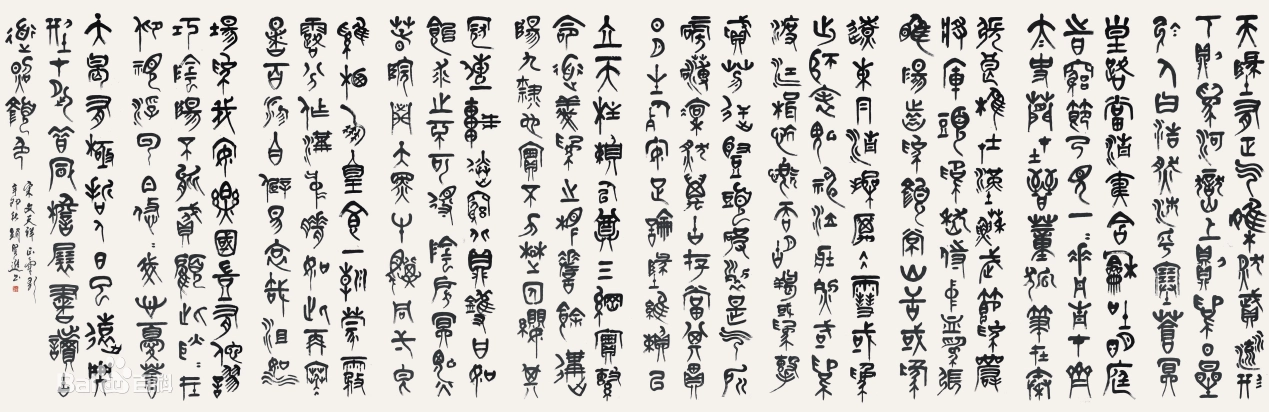 天地有正氣雜然賦流形
下則為河嶽上則為日星
於人曰浩然沛乎塞蒼冥
皇路當清夷含和吐明庭
時窮節乃見一一垂丹青在齊
太史簡在晉董狐筆在秦
張良椎在漢蘇武節為嚴
將軍頭為嵇侍中血為張
睢陽齒為顏常山舌或為
遼東帽清操厲冰雪或為
出師表鬼神泣壯烈或為
渡江楫慷慨吞胡羯或為擊
賊笏逆豎頭破裂是氣所
磅礴凜烈萬古存當其貫
日月生死安足論地維賴以
立天柱賴以尊三綱實繫
命道義為之根嗟余遘
陽九隸也實不力楚囚纓其
冠傳車送窮北鼎鑊甘如
飴求之不可得陰房闃鬼火
春院閟天黑牛驥同一皂
雞棲鳳皇食一朝蒙霧
露分作溝中瘠如此再寒
暑百沴自辟易哀哉沮洳
場為我安樂國豈有他繆
巧陰陽不能賊顧此耿耿在
仰視浮雲白悠悠我心憂蒼
天曷有極哲人日已遠典
刑在夙昔風簷展書讀古
道照顏色
宋文天祥正氣歌
辛卯秋
Baidu百科